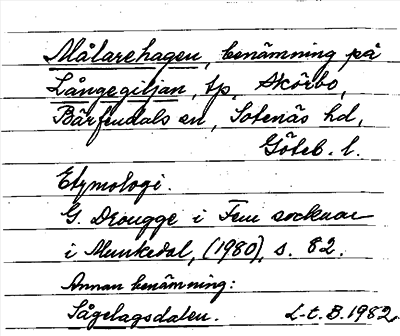 Målarehagen, benämning på
Långegiljan, tp, Skörbo,
Bärfendals sn, Sotenäs hd,
Göteb. l.
Etymologi.
G. Drougge i Fem socknar
i Munkedal, (1980), s. 82.
Annan benämning:
Sågelagsdalen. L-t. B. 1982.